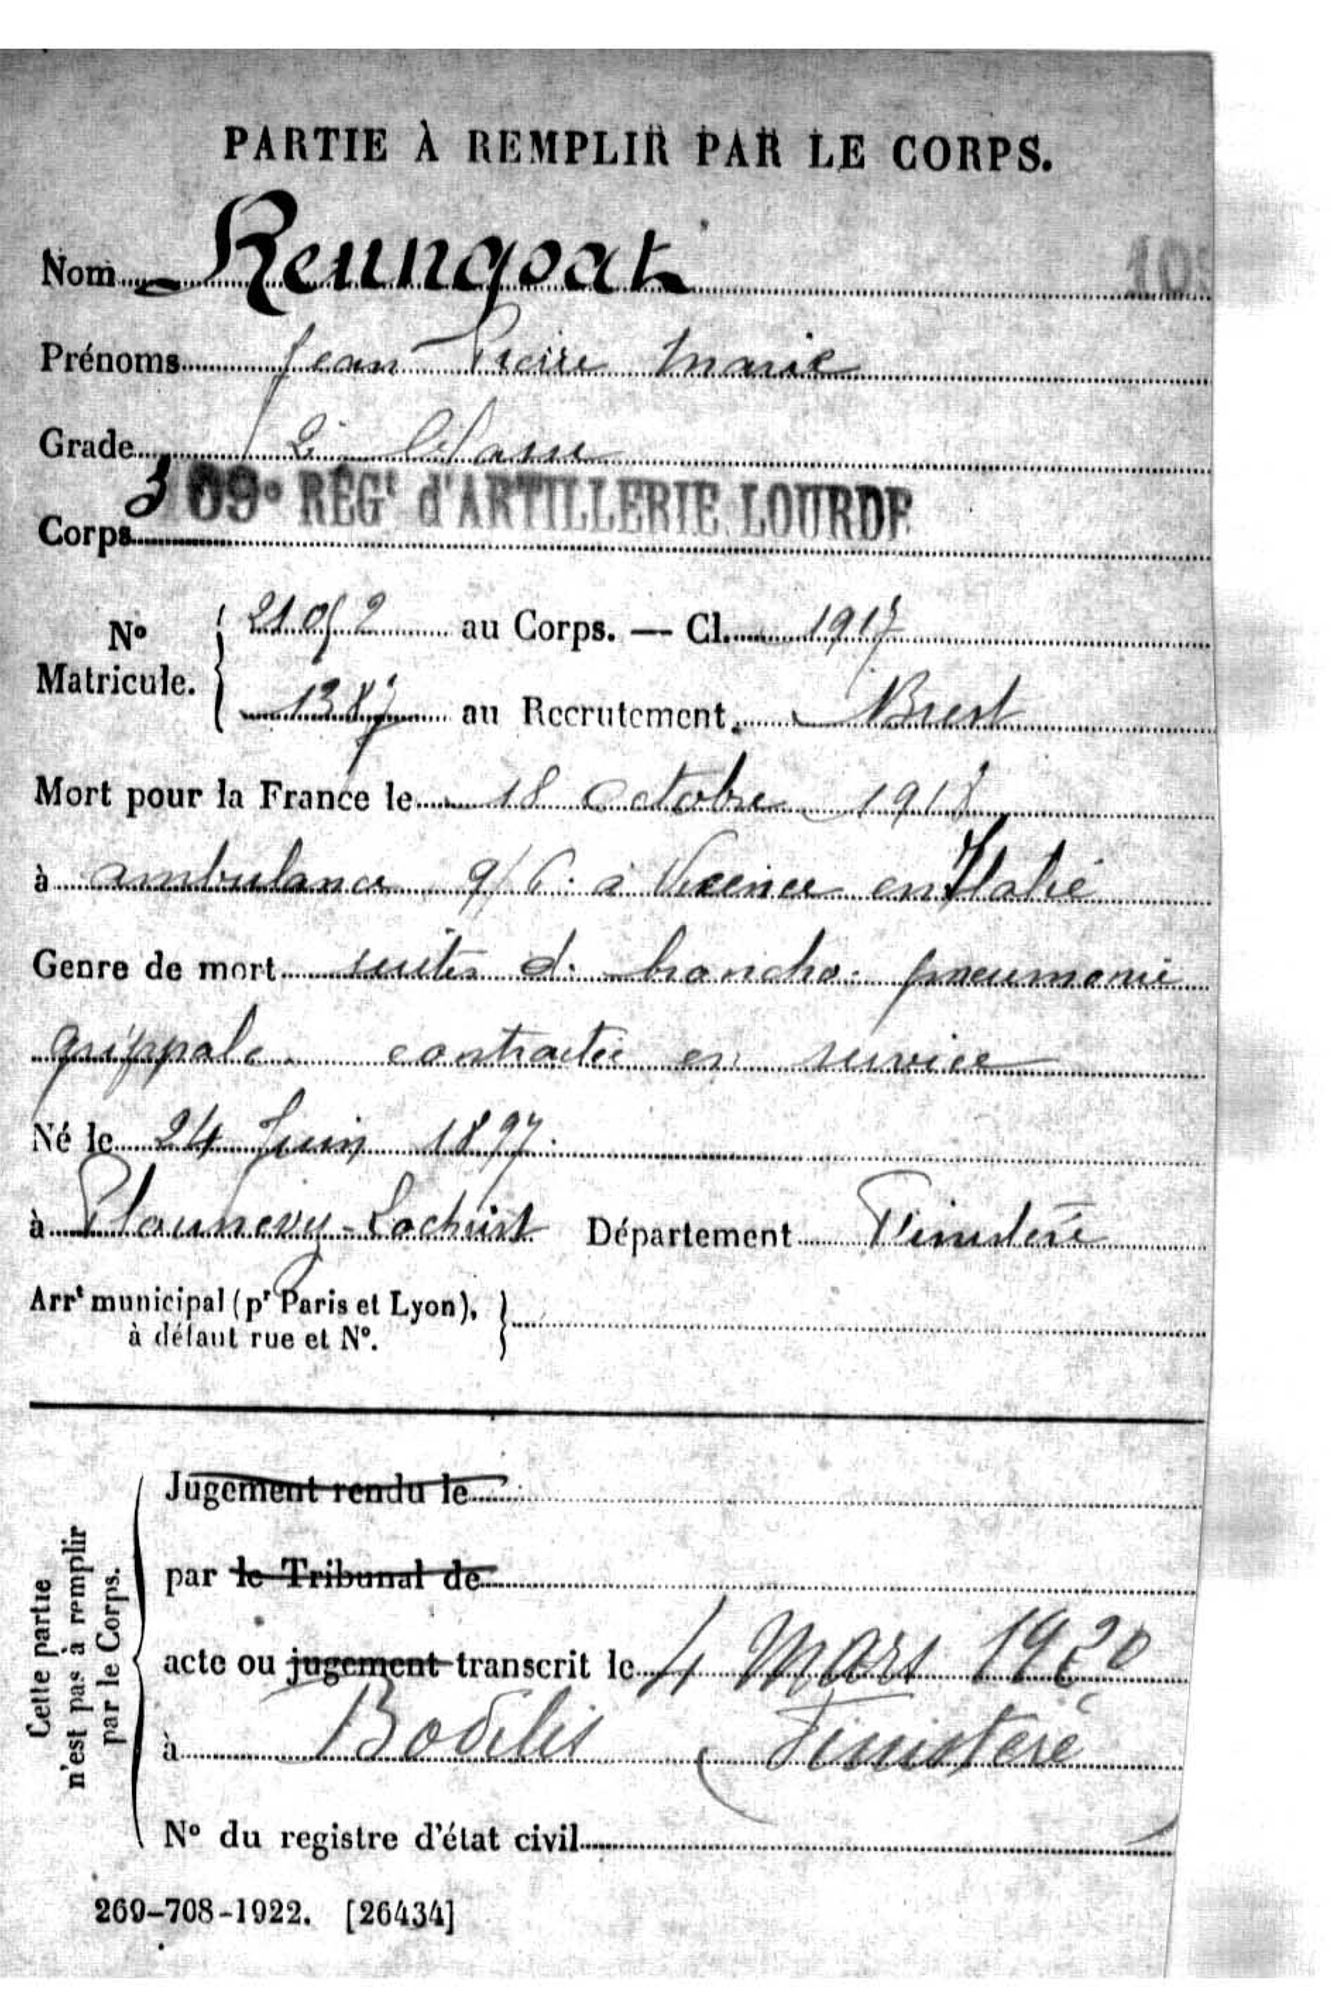 PARTIE À REMPLIR PAR LE CORPS.
Nom Reungoat
103
Prénoms Jean Pierre Marie
Grade 2e Classe
Corps 309e RÉGt d'ARTILLERIE LOURDE
No Matricule. { 21052 au Corps. — Cl. 1917
1387 au Recrutement Brest
Mort pour la France le 18 octobre 1918
à ambulance 9/6 à Vicence en Italie
Genre de mort suites de broncho-pneumonie
grippale contractée en service
Né le 24 Juin 1897.
à Plounevez-Lochrist Département Finistère
Arrt municipal (pr Paris et Lyon),
à défaut rue et No. }
Cette partie
n'est pas à remplir
par le Corps.
Jugement rendu le
par le Tribunal de
acte ou jugement transcrit le 4 Mars 1920
à Bodilis Finistère
No du registre d'état civil
269-708-1922. [26434]